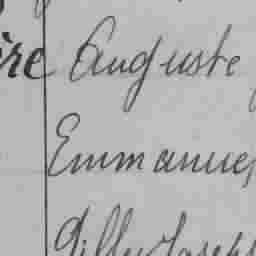 ère Auguste
Emmanuel
Gilly Joseph